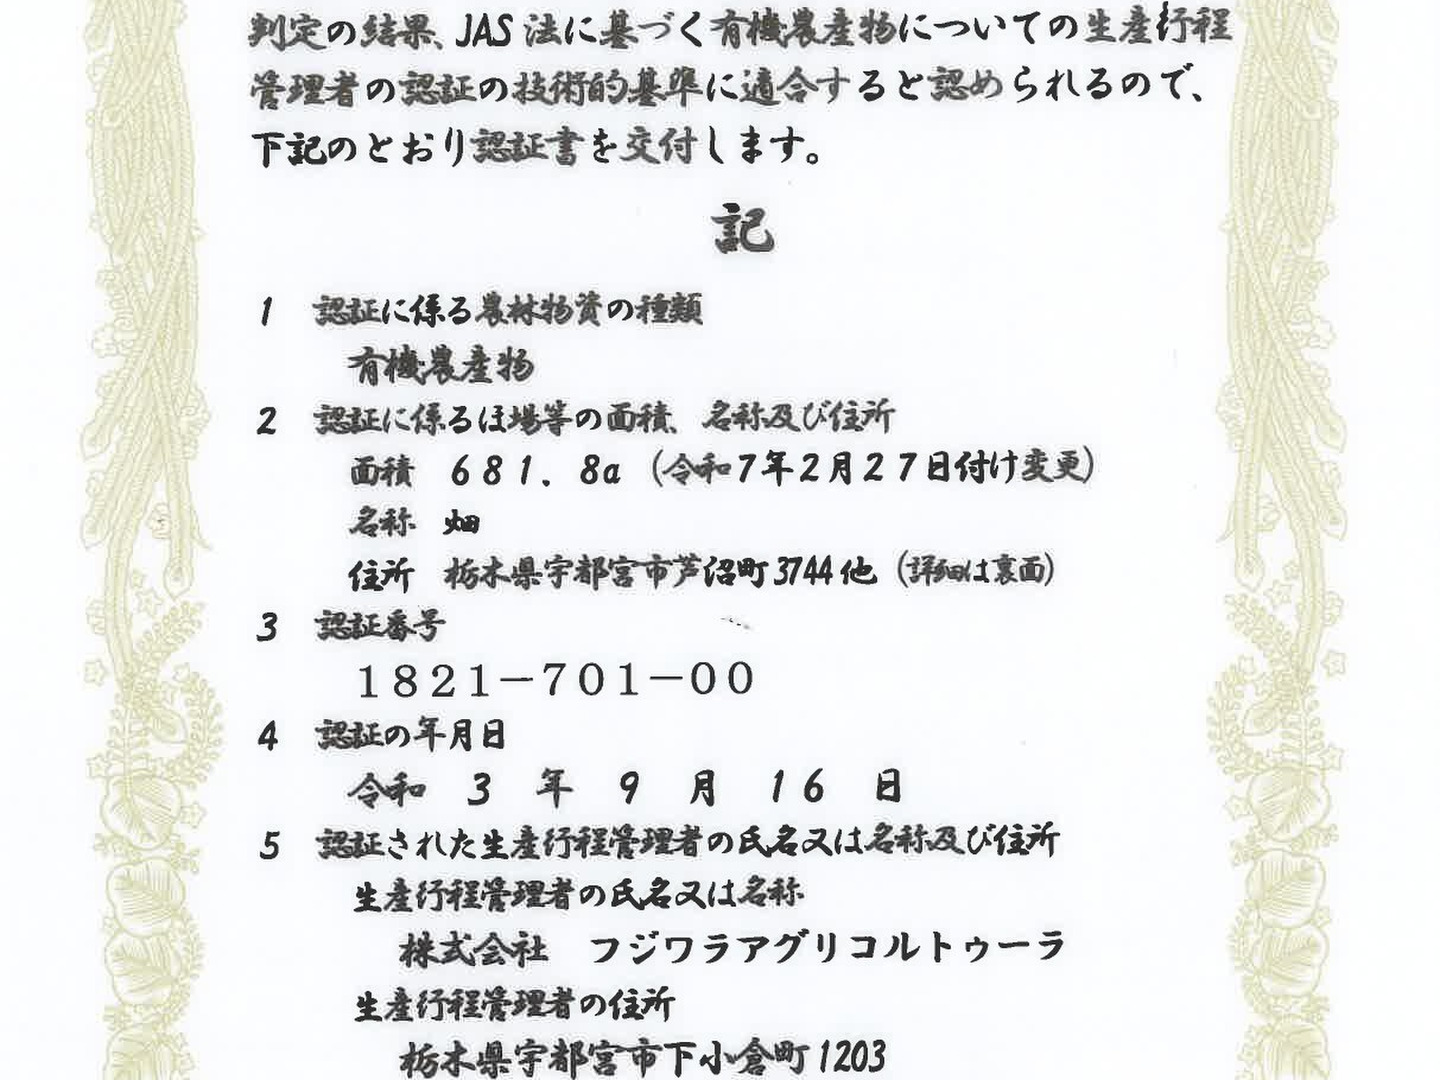 判定の結果、JAS法に基づく有機農産物についての生産行程
管理者の認証の技術的基準に適合すると認められるので、
下記のとおり認証書を交付します。
記
1 認証に係る農林物資の種類
有機農産物
2 認証に係るほ場等の面積、名称及び住所
面積 681.8a (令和7年2月27日付け変更)
名称 畑
住所 栃木県宇都宮市芦沼町3744他 (詳細は裏面)
3 認証番号
1821-701-00
4 認証の年月日
令和 3 年 9 月 16 日
5 認証された生産行程管理者の氏名又は名称及び住所
生産行程管理者の氏名又は名称
株式会社 フジワラアグリコルトゥーラ
生産行程管理者の住所
栃木県宇都宮市下小倉町1203